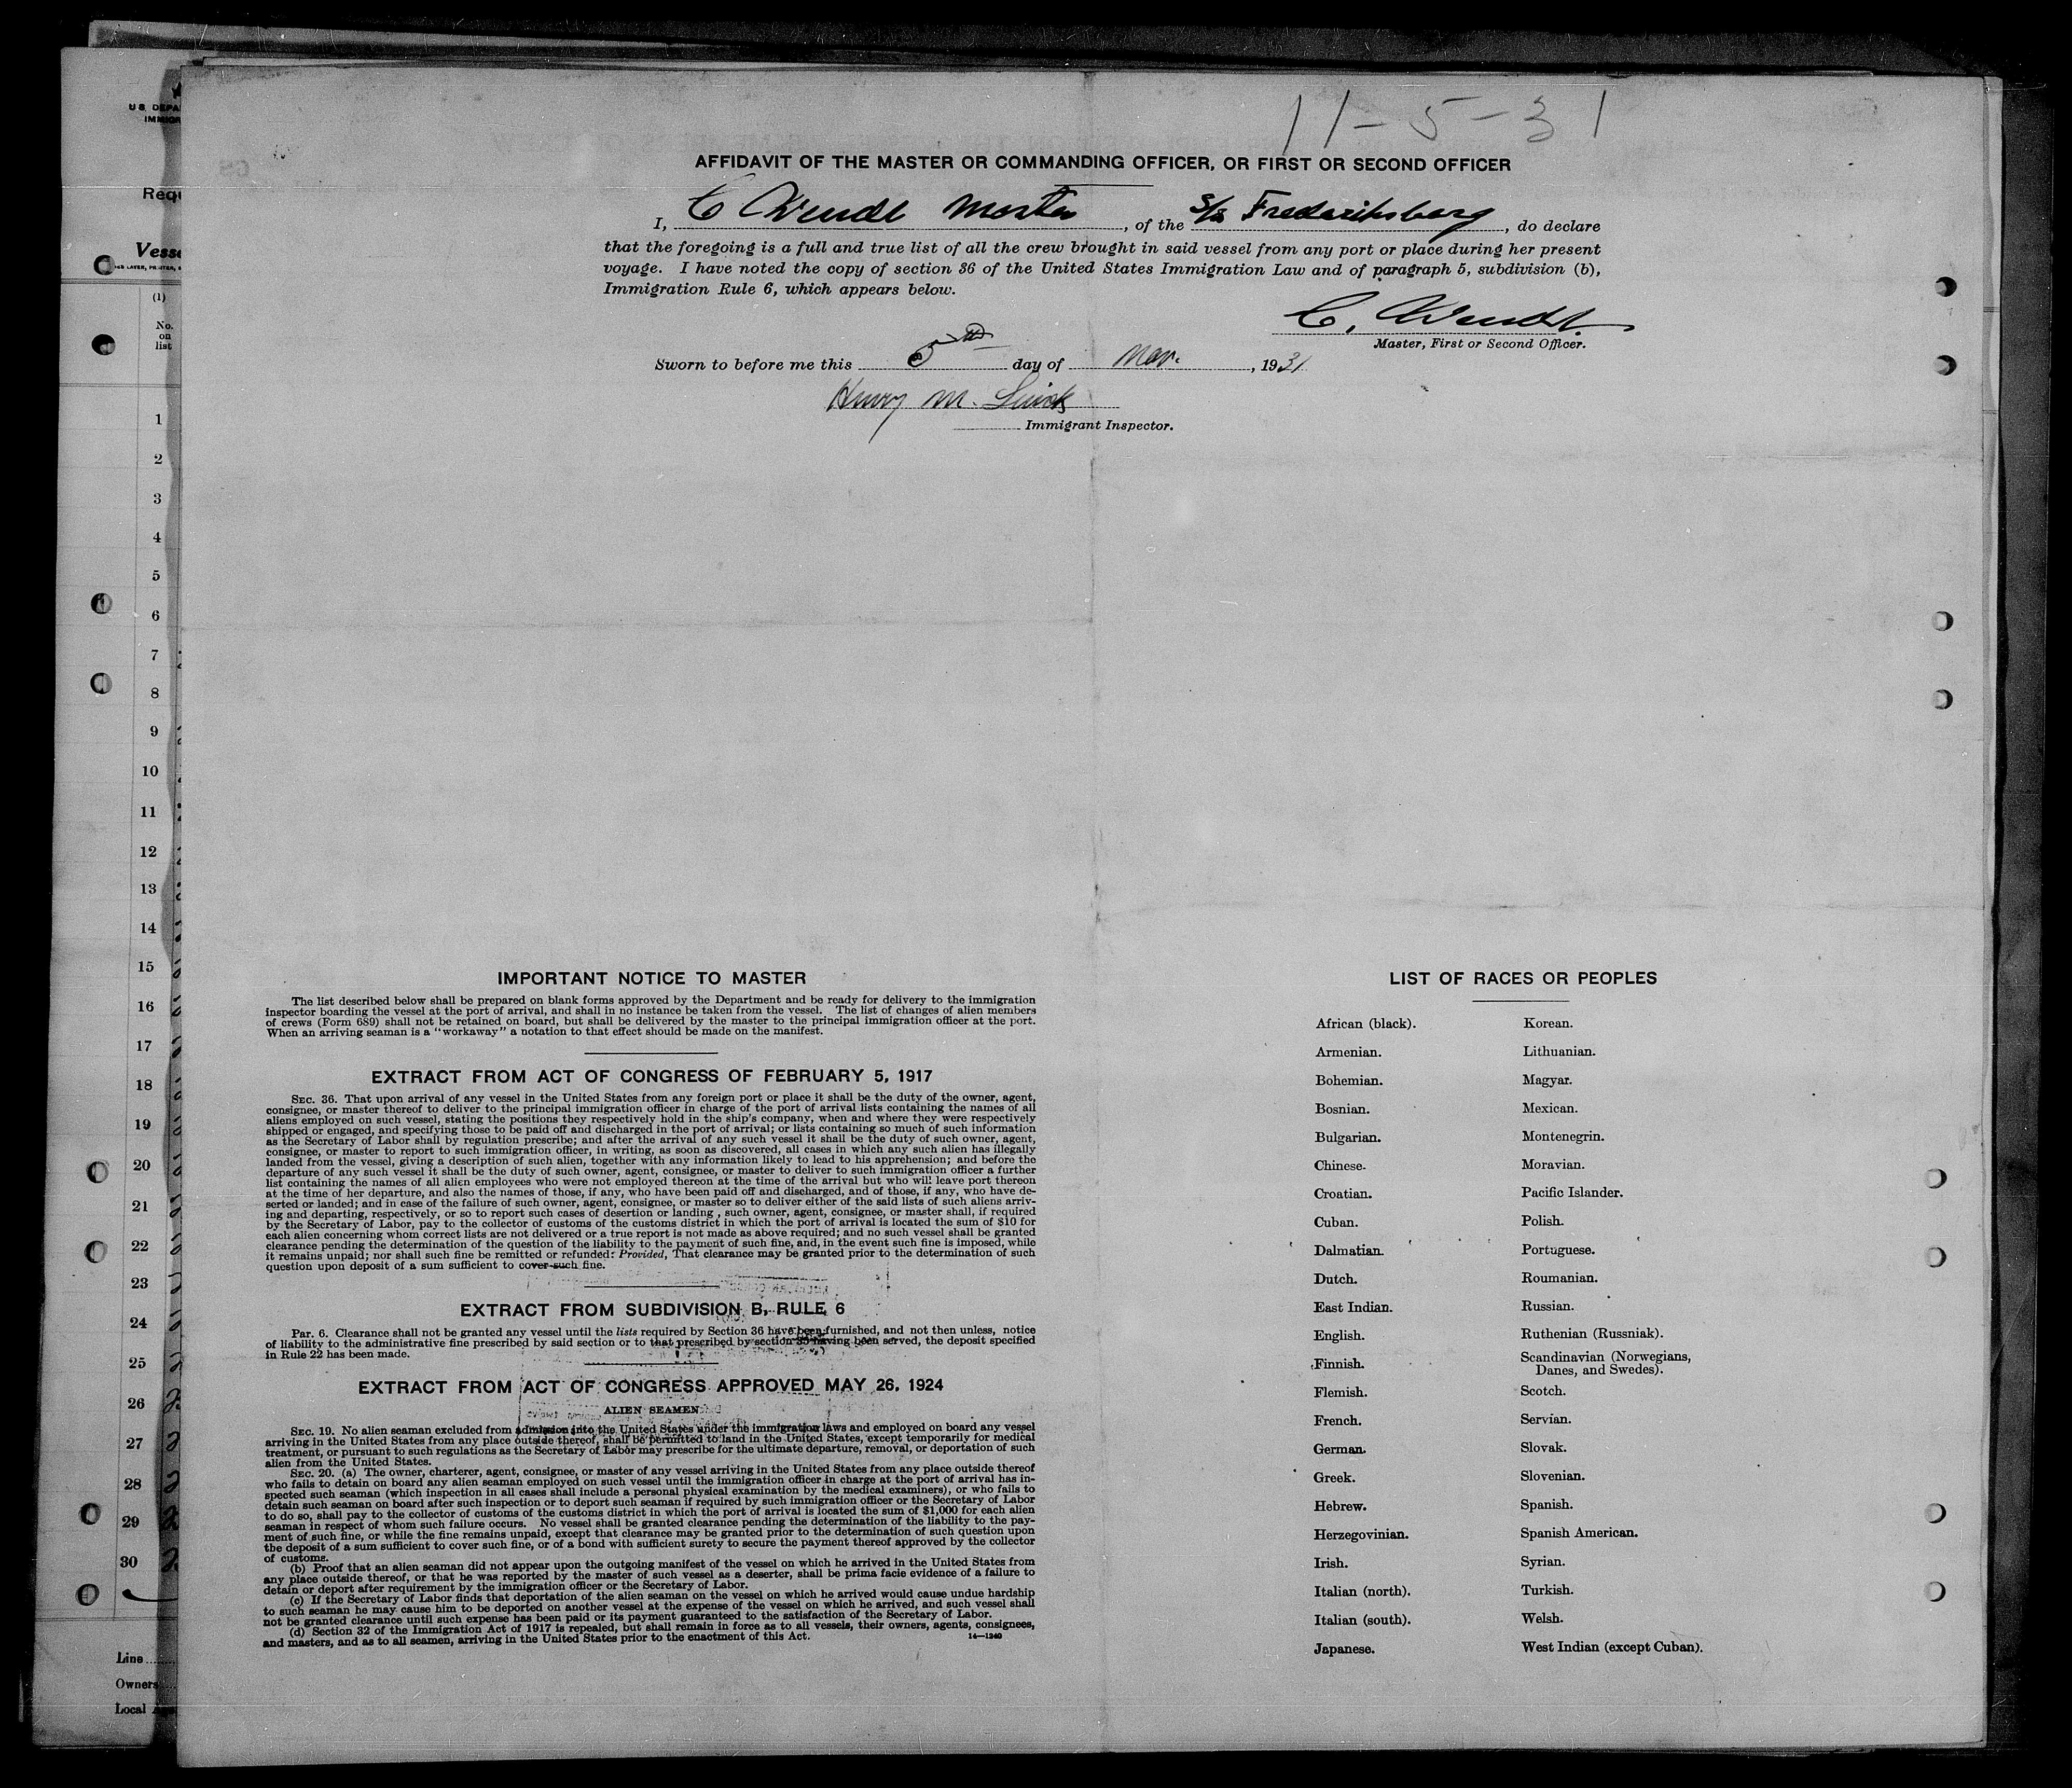 11-5-31
AFFIDAVIT OF THE MASTER OR COMMANDING OFFICER, OR FIRST OR SECOND OFFICER
I, C Wendt Master, of the S/S Frederiksborg, do declare
that the foregoing is a full and true list of all the crew brought in said vessel from any port or place during her present
voyage. I have noted the copy of section 36 of the United States Immigration Law and of paragraph 5, subdivision (b),
Immigration Rule 6, which appears below.
C. Wendt.
Master, First or Second Officer.
Sworn to before me this 5th day of Nov., 1931
Henry M.
Immigrant Inspector.
IMPORTANT NOTICE TO MASTER
The list described below shall be prepared on blank forms approved by the Department and be ready for delivery to the immigration
inspector boarding the vessel at the port of arrival, and shall in no instance be taken from the vessel. The list of changes of alien members
of crews (Form 689) shall not be retained on board, but shall be delivered by the master to the principal immigration officer at the port.
When an arriving seaman is a "workaway" a notation to that effect should be made on the manifest.
EXTRACT FROM ACT OF CONGRESS OF FEBRUARY 5, 1917
SEC. 36. That upon arrival of any vessel in the United States from any foreign port or place it shall be the duty of the owner, agent,
consignee, or master thereof to deliver to the principal immigration officer in charge of the port of arrival lists containing the names of all
aliens employed on such vessel, stating the positions they respectively hold in the ship's company, when and where they were respectively
shipped or engaged, and specifying those to be paid off and discharged in the port of arrival; or lists containing so much of such information
as the Secretary of Labor shall by regulation prescribe; and after the arrival of any such vessel it shall be the duty of such owner, agent,
consignee, or master to report to such immigration officer, in writing, as soon as discovered, all cases in which any such alien has illegally
landed from the vessel, giving a description of such alien, together with any information likely to lead to his apprehension; and before the
departure of any such vessel it shall be the duty of such owner, agent, consignee, or master to deliver to such immigration officer a further
list containing the names of all alien employees who were not employed thereon at the time of the arrival but who will leave port thereon
at the time of her departure, and also the names of those, if any, who have been paid off and discharged, and of those, if any, who have de-
serted or landed; and in case of the failure of such owner, agent, consignee, or master so to deliver either of the said lists of such aliens arriv-
ing and departing, respectively, or so to report such cases of desertion or landing , such owner, agent, consignee, or master shall, if required
by the Secretary of Labor, pay to the collector of customs of the customs district in which the port of arrival is located the sum of $10 for
each alien concerning whom correct lists are not delivered or a true report is not made as above required; and no such vessel shall be granted
clearance pending the determination of the question of the liability to the payment of such fine, and, in the event such fine is imposed, while
it remains unpaid; nor shall such fine be remitted or refunded: Provided, That clearance may be granted prior to the determination of such
question upon deposit of a sum sufficient to cover such fine.
EXTRACT FROM SUBDIVISION B, RULE 6
Par. 6. Clearance shall not be granted any vessel until the lists required by Section 36 have been furnished, and not then unless, notice
of liability to the administrative fine prescribed by said section or to that prescribed by section 35 having been served, the deposit specified
in Rule 22 has been made.
EXTRACT FROM ACT OF CONGRESS APPROVED MAY 26, 1924
ALIEN SEAMEN
SEC. 19. No alien seaman excluded from admission into the United States under the immigration laws and employed on board any vessel
arriving in the United States from any place outside thereof, shall be permitted to land in the United States, except temporarily for medical
treatment, or pursuant to such regulations as the Secretary of Labor may prescribe for the ultimate departure, removal, or deportation of such
alien from the United States.
SEC. 20. (a) The owner, charterer, agent, consignee, or master of any vessel arriving in the United States from any place outside thereof
who fails to detain on board any alien seaman employed on such vessel until the immigration officer in charge at the port of arrival has in-
spected such seaman (which inspection in all cases shall include a personal physical examination by the medical examiners), or who fails to
detain such seaman on board after such inspection or to deport such seaman if required by such immigration officer or the Secretary of Labor
to do so, shall pay to the collector of customs of the customs district in which the port of arrival is located the sum of $1,000 for each alien
seaman in respect of whom such failure occurs. No vessel shall be granted clearance pending the determination of the liability to the pay-
ment of such fine, or while the fine remains unpaid, except that clearance may be granted prior to the determination of such question upon
the deposit of a sum sufficient to cover such fine, or of a bond with sufficient surety to secure the payment thereof approved by the collector
of customs.
(b) Proof that an alien seaman did not appear upon the outgoing manifest of the vessel on which he arrived in the United States from
any place outside thereof, or that he was reported by the master of such vessel as a deserter, shall be prima facie evidence of a failure to
detain or deport after requirement by the immigration officer or the Secretary of Labor.
(c) If the Secretary of Labor finds that deportation of the alien seaman on the vessel on which he arrived would cause undue hardship
to such seaman he may cause him to be deported on another vessel at the expense of the vessel on which he arrived, and such vessel shall
not be granted clearance until such expense has been paid or its payment guaranteed to the satisfaction of the Secretary of Labor.
(d) Section 32 of the Immigration Act of 1917 is repealed, but shall remain in force as to all vessels, their owners, agents, consignees,
and masters, and as to all seamen, arriving in the United States prior to the enactment of this Act.
14—1240
LIST OF RACES OR PEOPLES
African (black).
Armenian.
Bohemian.
Bosnian.
Bulgarian.
Chinese.
Croatian.
Cuban.
Dalmatian.
Dutch.
East Indian.
English.
Finnish.
Flemish.
French.
German.
Greek.
Hebrew.
Herzegovinian.
Irish.
Italian (north).
Italian (south).
Japanese.
Korean.
Lithuanian.
Magyar.
Mexican.
Montenegrin.
Moravian.
Pacific Islander.
Polish.
Portuguese.
Roumanian.
Russian.
Ruthenian (Russniak).
Scandinavian (Norwegians,
Danes, and Swedes).
Scotch.
Servian.
Slovak.
Slovenian.
Spanish.
Spanish American.
Syrian.
Turkish.
Welsh.
West Indian (except Cuban).
(1)
No.
on
list
1
2
3
4
5
6
7
8
9
10
11
12
13
14
15
16
17
18
19
20
21
22
23
24
25
26
27
28
29
30
Line
Owners
Local